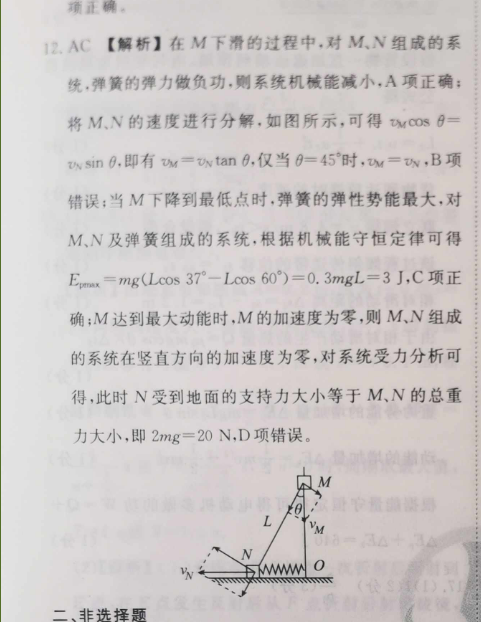 项正确。
12. AC 【解析】在 M 下滑的过程中,对 M、N 组成的系
统,弹簧的弹力做负功,则系统机械能减小,A 项正确;
将 M、N 的速度进行分解,如图所示,可得 v_M cos θ=
v_N sin θ,即有 v_M=v_N tan θ,仅当 θ=45°时,v_M=v_N,B 项
错误;当 M 下降到最低点时,弹簧的弹性势能最大,对
M、N 及弹簧组成的系统,根据机械能守恒定律可得
E_pmax=mg(Lcos 37°-Lcos 60°)=0.3mgL=3 J,C 项正
确;M 达到最大动能时,M 的加速度为零,则 M、N 组成
的系统在竖直方向的加速度为零,对系统受力分析可
得,此时 N 受到地面的支持力大小等于 M、N 的总重
力大小,即 2mg=20 N,D 项错误。
M
θ
L
v_M
N
v_N
O
二、非选择题